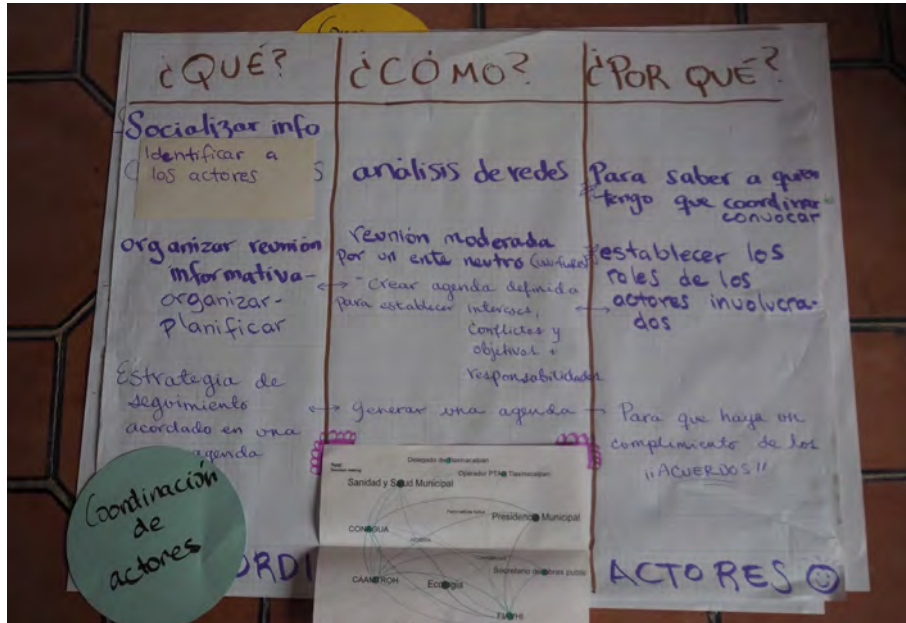 ¿QUÉ?
¿CÓMO?
¿POR QUÉ?
Socializar info
Identificar a
los actores
S
análisis de redes
Para saber a quien
tengo que coordinar
convocar
organizar reunión
informativa-
organizar-
Planificar
reunión moderada
por un ente neutro
- crear agenda definida
para establecer intereses,
Conflictos y
objetivos +
responsabilidades
establecer los
roles de los
actores involucra-
dos
Estrategia de
seguimiento
acordado en una
agenda
generar una agenda
Para que haya un
complimiento de los
¡¡ACUERDOS!!
Coordinación
de
actores
ORDI
ACTORES
Delegado de Tlaxmacalpan
Operador PTAR Tlaxmacalpan
Sanidad y Salud Municipal
Presidencia Municipal
CONAGUA
CAAMTROH
Ecología
Secretario de obras public